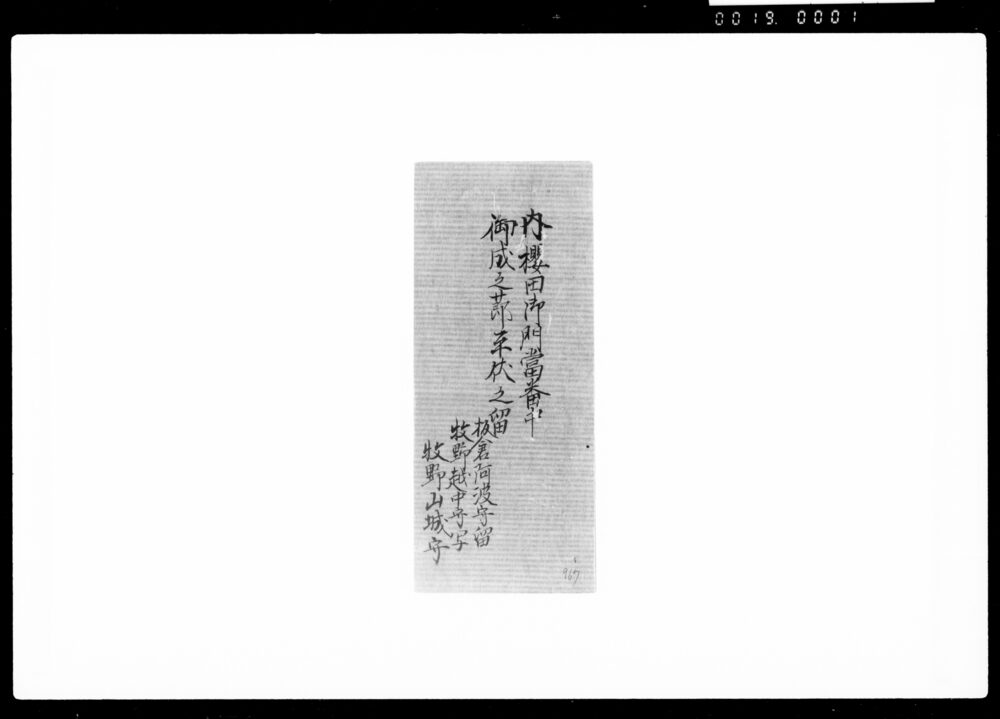 0019. 0001
内櫻田御門當番中
御成之節平伏之留
板倉阿波守留
牧野越中守写
牧野山城守
967